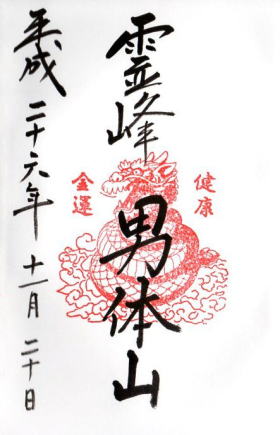 霊峰男体山
健康
金運
平成二十六年十一月二十日